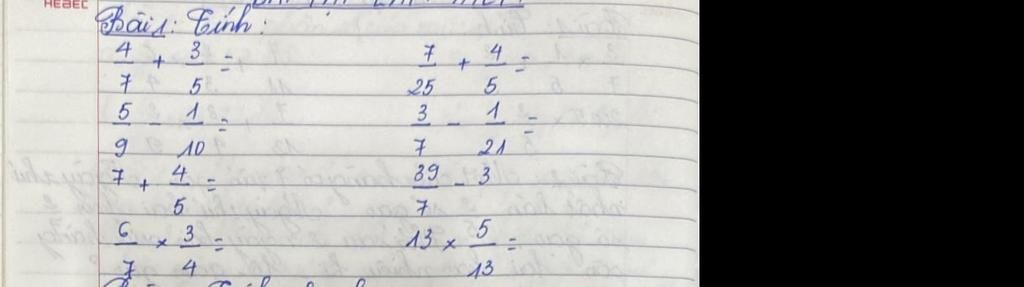 HEBEC
Bài 1: Tính:
4/7 + 3/5 = 7/25 + 4/5 =
5/9 - 1/10 = 3/7 - 1/21 =
7 + 4/5 = 39/7 - 3
6/7 × 3/4 = 13 × 5/13 =